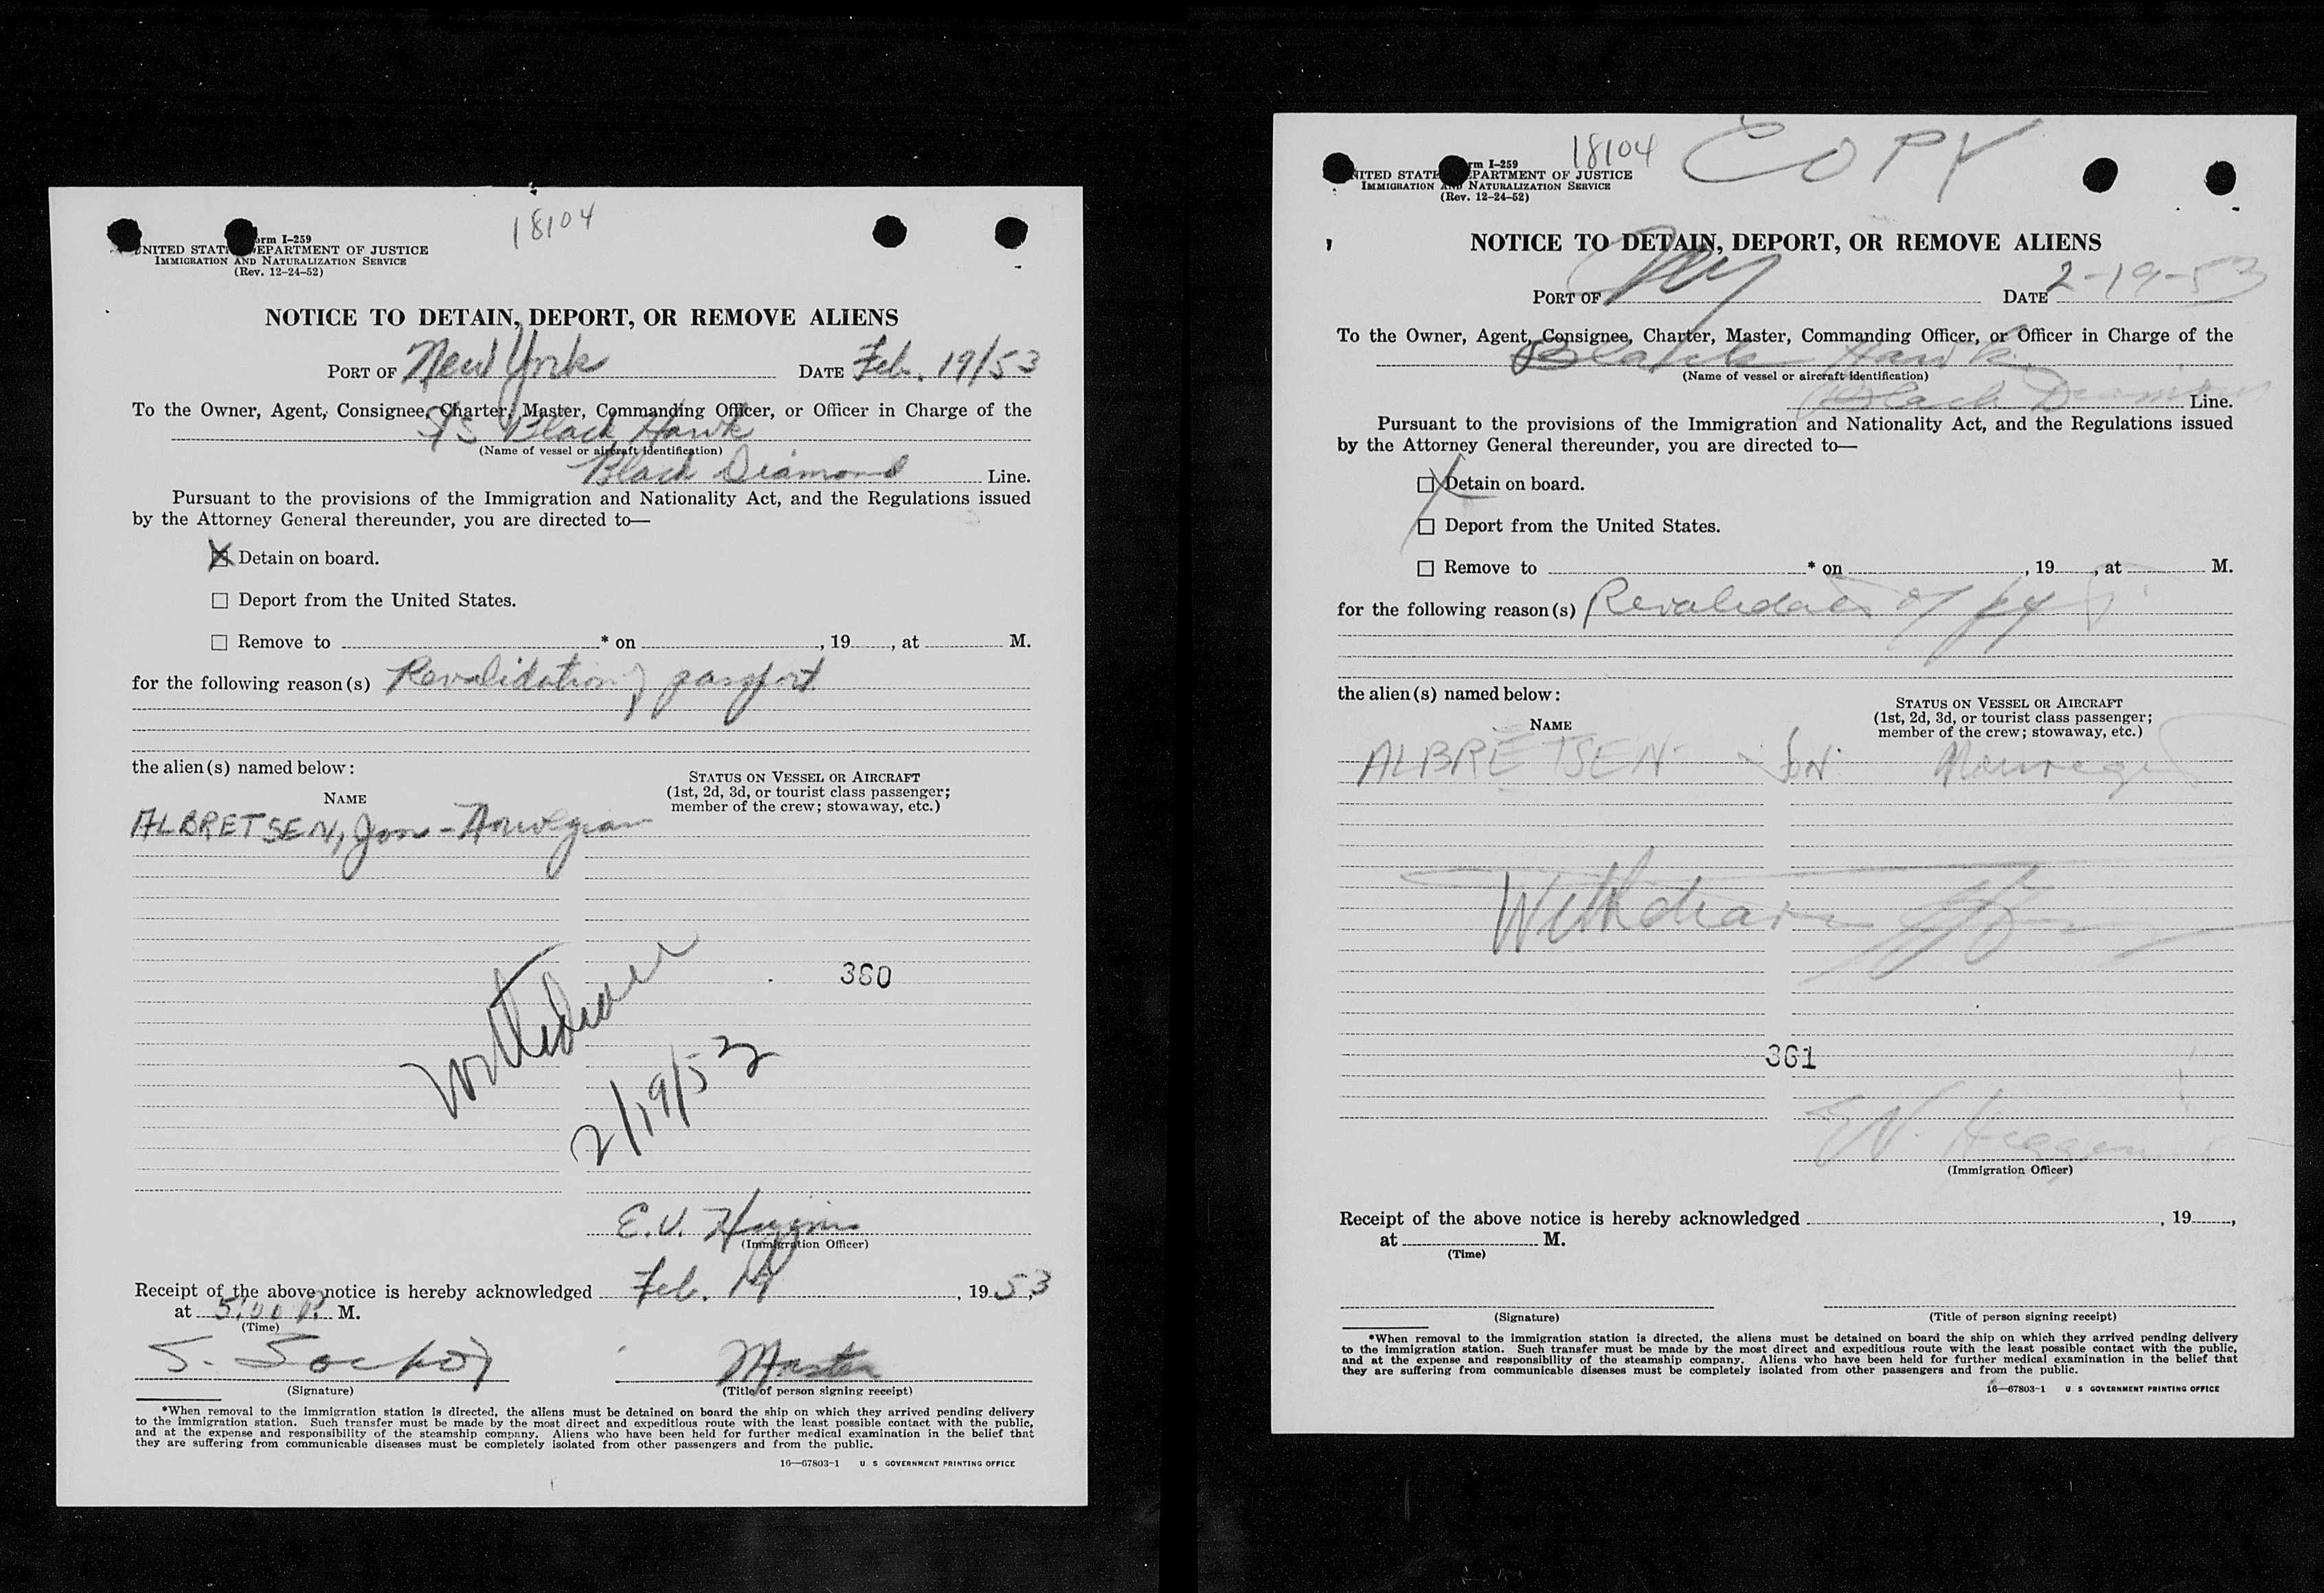 18104
Form I-259
UNITED STATES DEPARTMENT OF JUSTICE
IMMIGRATION AND NATURALIZATION SERVICE
(Rev. 12-24-52)
NOTICE TO DETAIN, DEPORT, OR REMOVE ALIENS
PORT OF New York DATE Feb. 19/53
To the Owner, Agent, Consignee, Charter, Master, Commanding Officer, or Officer in Charge of the
S/S Black Hawk
(Name of vessel or aircraft identification)
Black Diamond Line.
Pursuant to the provisions of the Immigration and Nationality Act, and the Regulations issued
by the Attorney General thereunder, you are directed to—
X Detain on board.
☐ Deport from the United States.
☐ Remove to * on , 19 , at M.
for the following reason(s) Revalidation of passport
the alien(s) named below:
NAME
STATUS ON VESSEL OR AIRCRAFT
(1st, 2d, 3d, or tourist class passenger;
member of the crew; stowaway, etc.)
ALBRETSEN, Jon - Norwegian
360
Withdrawn
2/19/53
E.V. Higgins
(Immigration Officer)
Receipt of the above notice is hereby acknowledged Feb. 19, 1953,
at 5:00 P. M.
(Time)
S.
Master
(Signature)
(Title of person signing receipt)
*When removal to the immigration station is directed, the aliens must be detained on board the ship on which they arrived pending delivery
to the immigration station. Such transfer must be made by the most direct and expeditious route with the least possible contact with the public,
and at the expense and responsibility of the steamship company. Aliens who have been held for further medical examination in the belief that
they are suffering from communicable diseases must be completely isolated from other passengers and from the public.
16—67803-1 U. S. GOVERNMENT PRINTING OFFICE
18104 COPY
Form I-259
UNITED STATES DEPARTMENT OF JUSTICE
IMMIGRATION AND NATURALIZATION SERVICE
(Rev. 12-24-52)
NOTICE TO DETAIN, DEPORT, OR REMOVE ALIENS
PORT OF NY DATE 2-19-53
To the Owner, Agent, Consignee, Charter, Master, Commanding Officer, or Officer in Charge of the
Black Hawk
(Name of vessel or aircraft identification)
Black Diamond Line.
Pursuant to the provisions of the Immigration and Nationality Act, and the Regulations issued
by the Attorney General thereunder, you are directed to—
☐ Detain on board.
☐ Deport from the United States.
☐ Remove to * on , 19 , at M.
for the following reason(s) Revalidation of
the alien(s) named below:
NAME
STATUS ON VESSEL OR AIRCRAFT
(1st, 2d, 3d, or tourist class passenger;
member of the crew; stowaway, etc.)
ALBRETSEN - JON
Withdrawn
361
E.V. Higgins
(Immigration Officer)
Receipt of the above notice is hereby acknowledged , 19 ,
at M.
(Time)
(Signature)
(Title of person signing receipt)
*When removal to the immigration station is directed, the aliens must be detained on board the ship on which they arrived pending delivery
to the immigration station. Such transfer must be made by the most direct and expeditious route with the least possible contact with the public,
and at the expense and responsibility of the steamship company. Aliens who have been held for further medical examination in the belief that
they are suffering from communicable diseases must be completely isolated from other passengers and from the public.
16—67803-1 U. S. GOVERNMENT PRINTING OFFICE